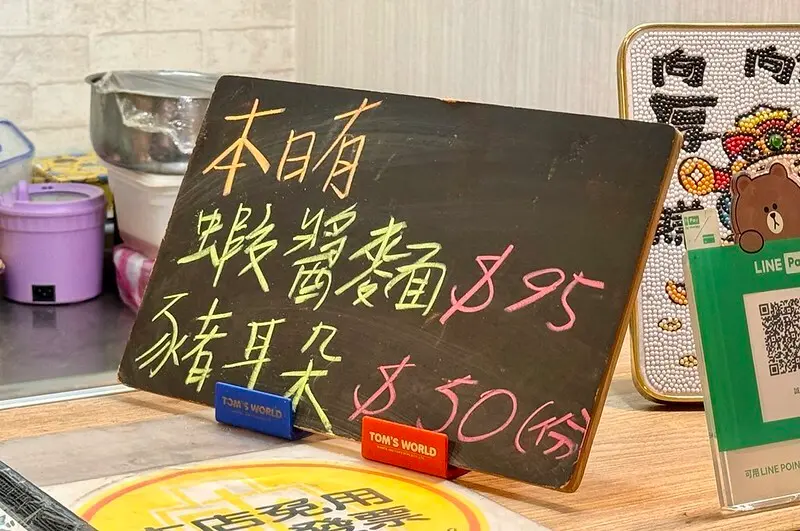 本日有
蝦醬麵 $95
豬耳朵 $50(份)
TOM'S WORLD
TOM'S WORLD
向 向
厚
LINE Pay
可用LINE POIN
店免用
發票